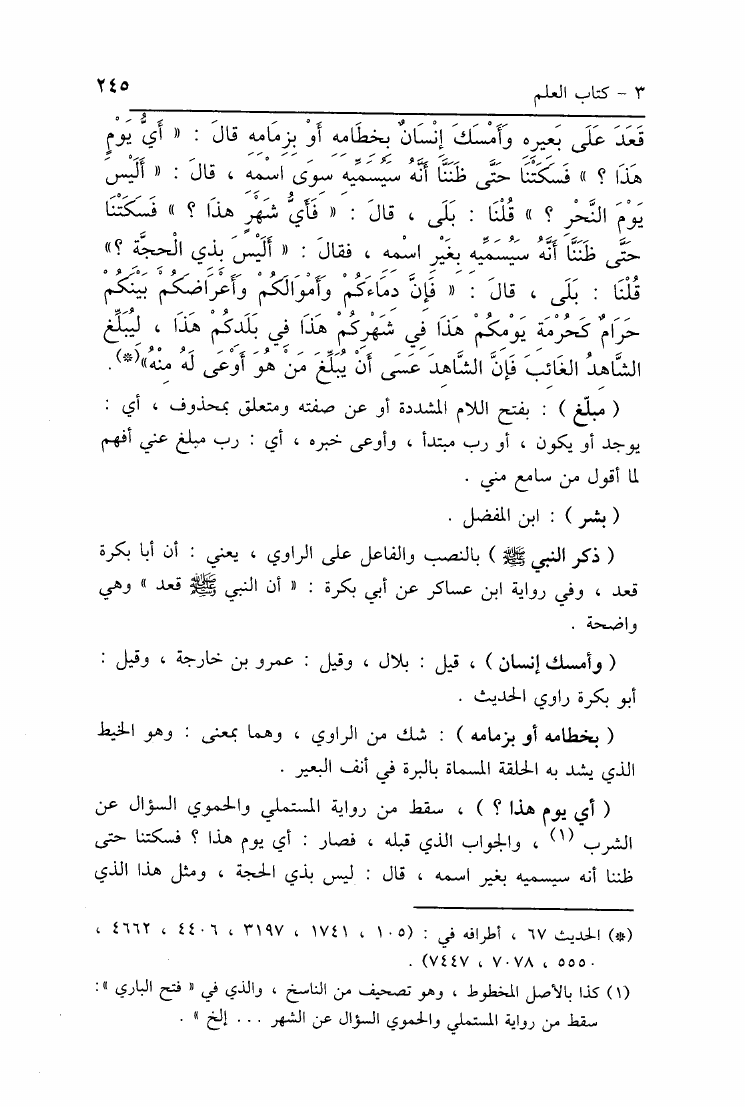 ٣ - كتاب العلم
٢٤٥
قَعَدَ عَلَى بَعِيرِهِ وَأَمْسَكَ إِنْسَانٌ بِخِطَامِهِ أَوْ بِزِمَامِهِ قَالَ : « أَيُّ يَوْمٍ
هَذَا ؟ » فَسَكَتْنَا حَتَّى ظَنَنَّا أَنَّهُ سَيُسَمِّيهِ سِوَى اسْمِهِ ، قَالَ : « أَلَيْسَ
يَوْمَ النَّحْرِ ؟ » قُلْنَا : بَلَى ، قَالَ : « فَأَيُّ شَهْرٍ هَذَا ؟ » فَسَكَتْنَا
حَتَّى ظَنَنَّا أَنَّهُ سَيُسَمِّيهِ بِغَيْرِ اسْمِهِ ، فقالَ : « أَلَيْسَ بِذِي الْحِجَّةِ ؟»
قُلْنَا : بَلَى ، قَالَ : « فَإِنَّ دِمَاءَكُمْ وَأَمْوَالَكُمْ وَأَعْرَاضَكُمْ بَيْنَكُمْ
حَرَامٌ كَحُرْمَةِ يَوْمِكُمْ هَذَا فِي شَهْرِكُمْ هَذَا فِي بَلَدِكُمْ هَذَا ، لِيُبَلِّغِ
الشَّاهِدُ الغَائِبَ فَإِنَّ الشَّاهِدَ عَسَى أَنْ يُبَلِّغَ مَنْ هُوَ أَوْعَى لَهُ مِنْهُ»(*).
( مبلّغ ) : بفتح اللام المشددة أو عن صفته ومتعلق بمحذوف ، أي :
يوجد أو يكون ، أو رب مبتدأ ، وأوعى خبره ، أي : رب مبلغ عني أفهم
لما أقول من سامع مني .
( بشر ) : ابن المفضل .
( ذكر النبي ﷺ ) بالنصب والفاعل على الراوي ، يعني : أن أبا بكرة
قعد ، وفي رواية ابن عساكر عن أبي بكرة : « أن النبي ﷺ قعد » وهي
واضحة .
( وأمسك إنسان ) ، قيل : بلال ، وقيل : عمرو بن خارجة ، وقيل :
أبو بكرة راوي الحديث .
( بخطامه أو بزمامه ) : شك من الراوي ، وهما بمعنى : وهو الخيط
الذي يشد به الحلقة المسماة بالبرة في أنف البعير .
( أي يوم هذا ؟ ) ، سقط من رواية المستملي والحموي السؤال عن
الشرب (١) ، والجواب الذي قبله ، فصار : أي يوم هذا ؟ فسكتنا حتى
ظننا أنه سيسميه بغير اسمه ، قال : ليس بذي الحجة ، ومثل هذا الذي
(*) الحديث ٦٧ ، أطرافه في : (١٠٥ ، ١٧٤١ ، ٣١٩٧ ، ٤٤٠٦ ، ٤٦٦٢ ،
٥٥٥٠ ، ٧٠٧٨ ، ٧٤٤٧) .
(١) كذا بالأصل المخطوط ، وهو تصحيف من الناسخ ، والذي في « فتح الباري »:
سقط من رواية المستملي والحموي السؤال عن الشهر ... إلخ » .